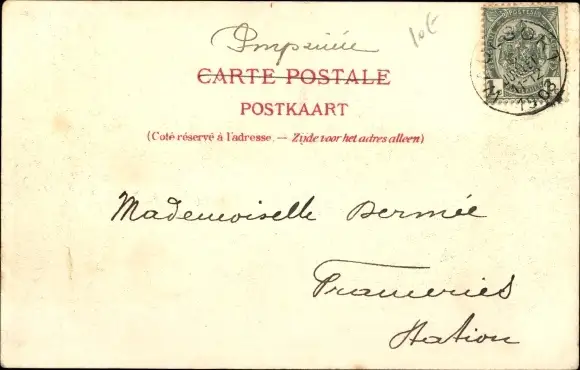 Imprimée
10€
CARTE POSTALE
POSTKAART
(Coté réservé à l'adresse. — Zijde voor het adres alleen)
1903
Mademoiselle Dermée
Frameries
Station